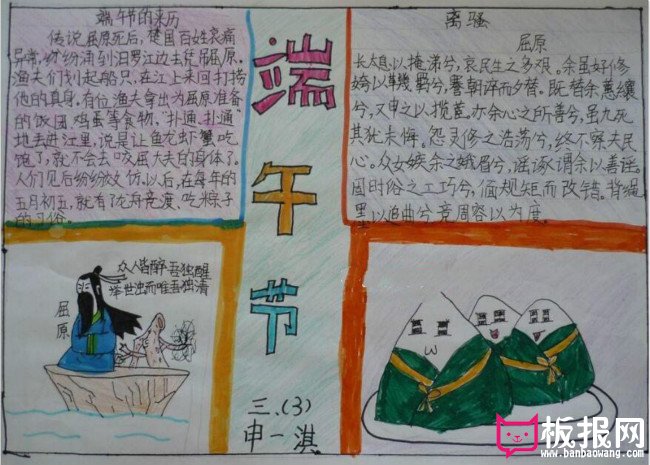 端午节的来历
传说屈原死后,楚国百姓哀痛
异常,纷纷涌到汨罗江边去凭吊屈原。
渔夫们划起船只,在江上来回打捞
他的真身。有位渔夫拿出为屈原准备
的饭团、鸡蛋等食物,“扑通、扑通”
地丢进江里,说是让鱼龙虾蟹吃
饱了,就不会去咬屈大夫的身体了。
人们见后纷纷效仿。以后,在每年的
五月初五,就有龙舟竞渡、吃粽子
的习俗。
端午节
离骚
屈原
长太息以掩涕兮,哀民生之多艰。余虽好修
姱以鞿羁兮,謇朝谇而夕替。既替余以蕙纕
兮,又申之以揽茝。亦余心之所善兮,虽九死
其犹未悔。怨灵修之浩荡兮,终不察夫民
心。众女嫉余之蛾眉兮,谣诼谓余以善淫。
固时俗之工巧兮,偭规矩而改错。背绳
墨以追曲兮,竞周容以为度。
众人皆醉吾独醒
举世浊而唯吾独清
屈原
三.(3)
申一淇
板报网
www.banbaowang.com